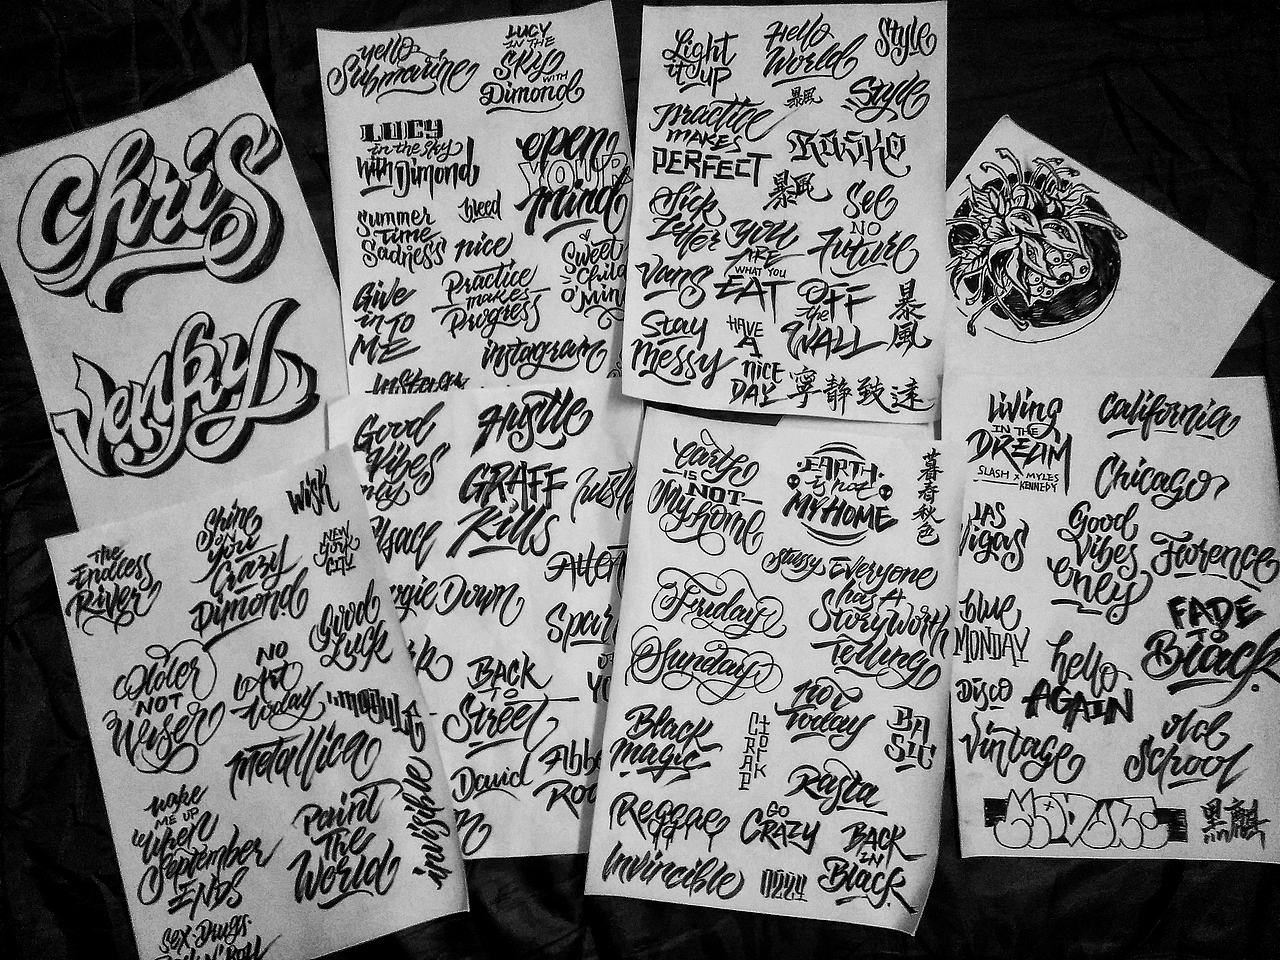 Chris
Venky
yello
Submarine
LUCY
IN THE
SKY
WITH
Dimond
LUCY
in the sky
with Dimond
open
YOUR
mind
Summer
Time
Sadness
bleed
nice
Sweet
Child
O'Mine
Give
inTo
ME
Practice
makes
Progress
instagram
Light
it up
Hello
World
Style
Style
practice
MAKES
PERFECT
暴風
RASKO
暴風
Sick
Letter
You
ARE
WHAT YOU
EAT
See
NO
Future
Vans
OFF
the
WALL
暴
風
Stay
Messy
HAVE
A
nice
DAY
寧靜致遠
Good
Vibes
Hustle
GRAFF
Kills
Down
BACK
TO
Street
David
earth
IS
NOT
My home
EARTH
is not
MY HOME
暮
春
秋
色
Everyone
has A
Story Worth
Telling
Friday
Sunday
Not
Today
Black
magic
BA
SIC
Rasta
Reggae
GO
CRAZY
Invincible
BACK
IN
Black
Living
IN THE
DREAM
SLASH X MYLES
KENNEDY
California
Chicago
LAS
Vigas
Good
Vibes
oney
Florence
blue
MONDAY
FADE
TO
Black
hello
AGAIN
Disco
Vintage
old
School
The
Endless
River
Shine
ON
You
Crazy
Dimond
wish
NEW
YORK
CITY
Good
Luck
Older
NOT
Wiser
NO
Art
Today
metallica
invisible
wake
ME UP
When
September
ENDS
Paint
The
World
Sex Drugs